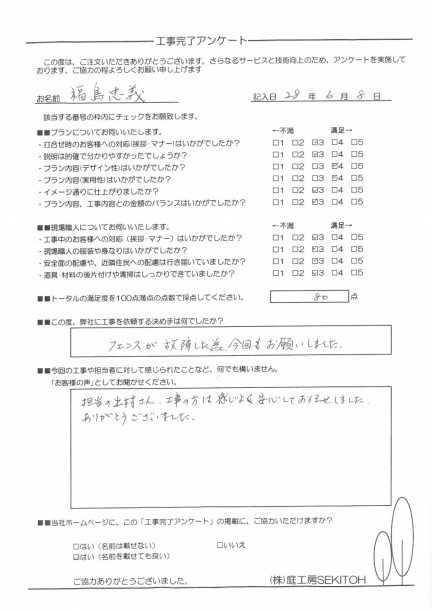 工事完了アンケート
この度は、ご注文いただきありがとうございます。さらなるサービスと技術向上のため、アンケートを実施して
おります。ご協力の程よろしくお願い申し上げます
お名前 福島忠義 記入日 28 年 6 月 8 日
該当する番号の枠内にチェックをお願致します。
■■プランについてお伺いいたします。 ←不満 満足→
・打合せ時のお客様への対応(挨拶・マナー)はいかがでしたか? □1 □2 ☑3 □4 □5
・説明は的確で分かりやすかったでしょうか? □1 □2 ☑3 □4 □5
・プラン内容(デザイン性)はいかがでしたか? □1 □2 ☑3 □4 □5
・プラン内容(実用性)はいかがでしたか? □1 □2 ☑3 □4 □5
・イメージ通りに仕上がりましたか? □1 □2 ☑3 □4 □5
・プラン内容、工事内容との金額のバランスはいかがでしたか? □1 □2 ☑3 □4 □5
■■現場職人についてお伺いいたします。 ←不満 満足→
・工事中のお客様への対応(挨拶・マナー)はいかがでしたか? □1 □2 ☑3 □4 □5
・現場職人の服装や身なりはいかがでしたか? □1 □2 ☑3 □4 □5
・安全面の配慮や、近隣住民への配慮は行き届いていましたか? □1 □2 ☑3 □4 □5
・道具・材料の後片付けや清掃はしっかりできていましたか? □1 □2 ☑3 □4 □5
■■トータルの満足度を100点満点の点数で採点してください。 80 点
■■この度、弊社に工事を依頼する決め手は何でしたか?
フェンスが故障した為、今回もお願いしました.
■■今回の工事や担当者に対して感じられたことなど、何でも構いません。
「お客様の声」としてお聞かせください。
担当の さん、工事の方は感じよく安心してお任せしました.
ありがとうございました.
■■当社ホームページに、この「工事完了アンケート」の掲載に、ご協力いただけますか?
□はい(名前は載せない) □いいえ
☑はい(名前を載せても良い)
ご協力ありがとうございました。 (株)庭工房SEKITOH